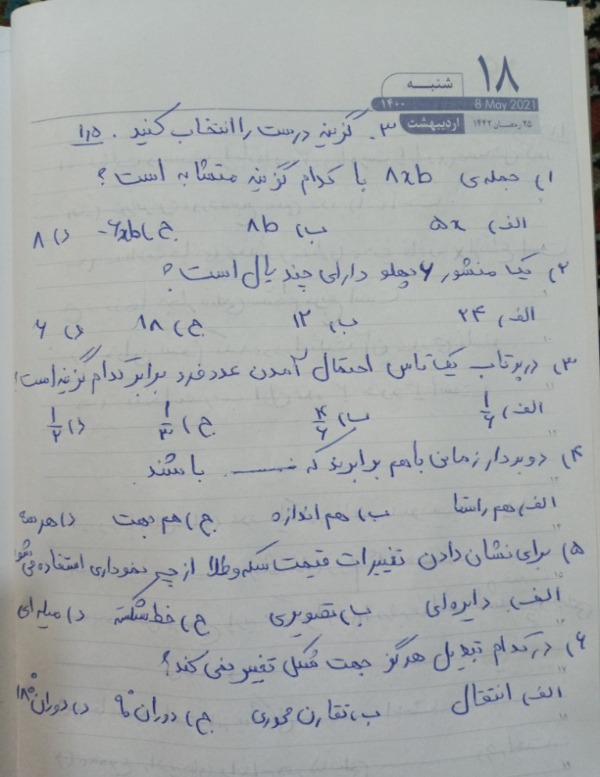 ۱۸
شنبه
۱۴۰۰
8 May 2021
اردیبهشت
۲۵ رمضان ۱۴۴۲
۳. گزینه درست را انتخاب کنید. ۱,۵
۱) جمله‌ی ۸xb با کدام گزینه متشابه است؟
الف) ۵x ب) ۸b ج) -۶xb د) ۸
۲) یک منشور ۶ پهلو دارای چند یال است؟
الف) ۲۴ ب) ۱۲ ج) ۱۸ د) ۶
۳) در پرتاب یک تاس احتمال آمدن عدد فرد برابر کدام گزینه است؟
الف) ۱/۶ ب) ۴/۶ ج) ۱/۳ د) ۱/۲
۴) دو بردار زمانی با هم برابرند که ........ باشند.
الف) هم راستا ب) هم اندازه ج) هم جهت د) هر سه
۵) برای نشان دادن تغییرات قیمت سکه و طلا از چه نموداری استفاده می شود
الف) دایره‌ای ب) تصویری ج) خط شکسته د) میله‌ای
۶) در کدام تبدیل هرگز جهت شکل تغییر نمی کند؟
الف) انتقال ب) تقارن محوری ج) دوران ۹۰° د) دوران ۱۸۰°